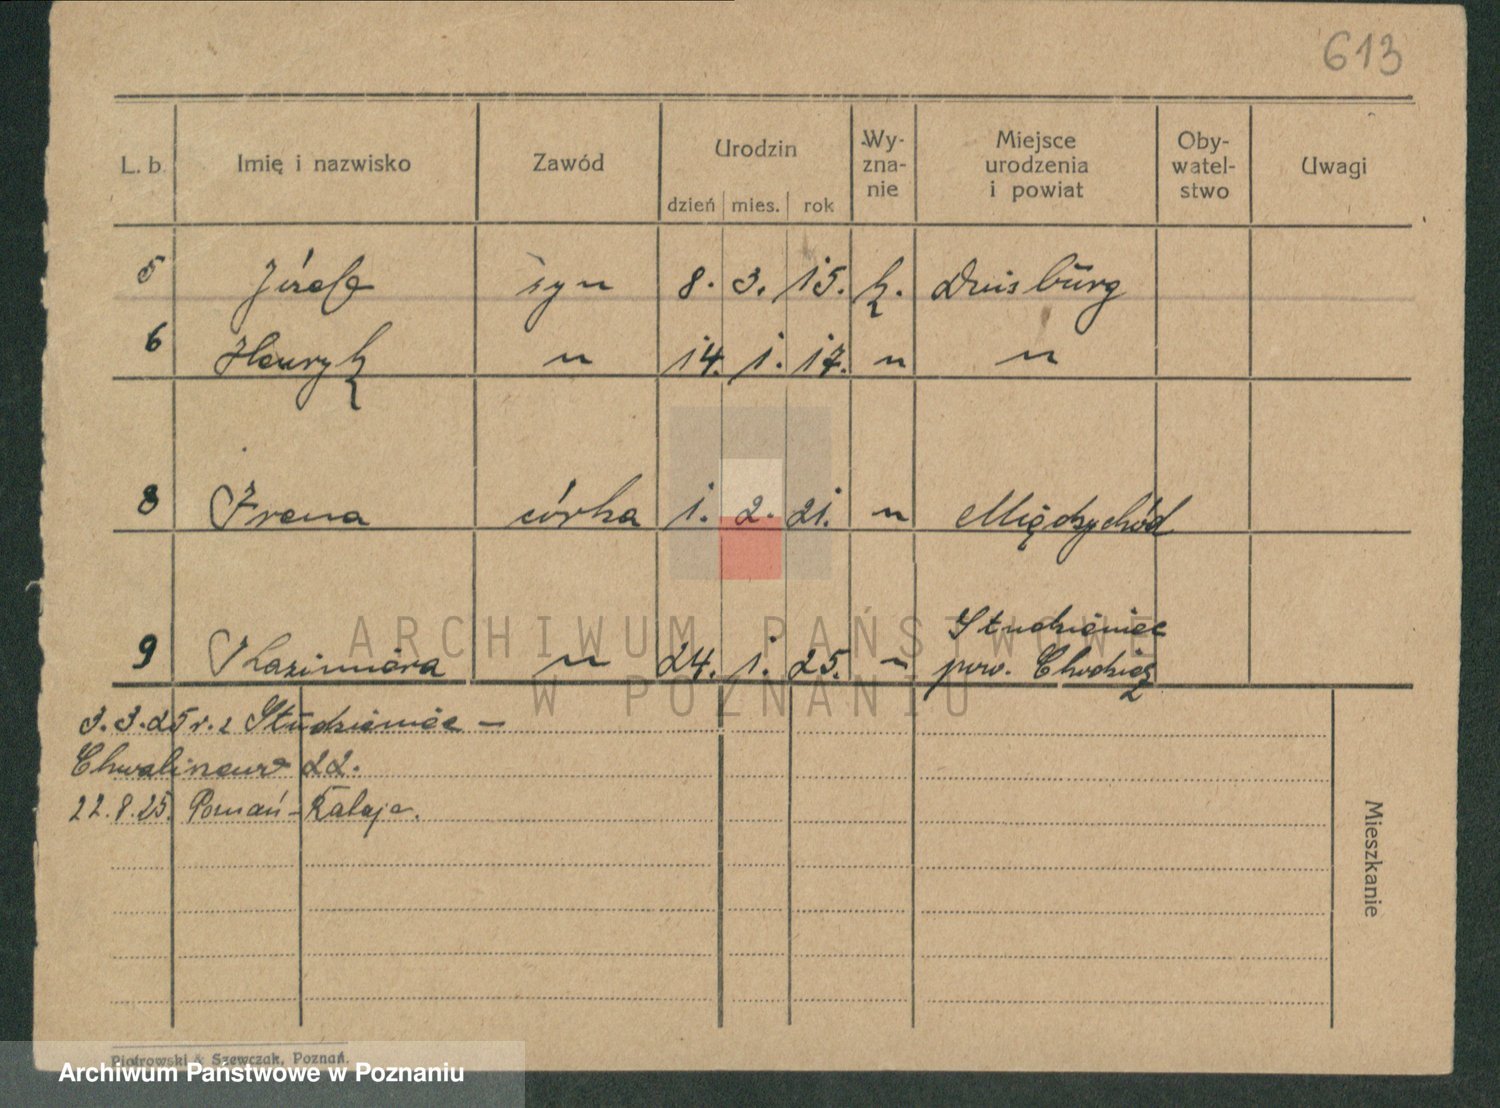 613
L. b. Imię i nazwisko Zawód Urodzin Wy- Miejsce Oby- Uwagi
zna- urodzenia watel-
dzień mies. rok nie i powiat stwo
5 Józef syn 8. 3. 15. k. Duisburg
6 Henryk " 14. 1. 17. " "
8 Irena córka 1. 2. 21. " Międzychód
Studzieniec
9 Kazimiera " 24. 1. 25. " pow. Chodzież
ARCHIWUM PAŃSTWOWE
W POZNANIU
3.3.25 r. z Studzieniec –
22.
22.8.25. Poznań –
Mieszkanie
Piotrowski & Szewczak, Poznań.
Archiwum Państwowe w Poznaniu